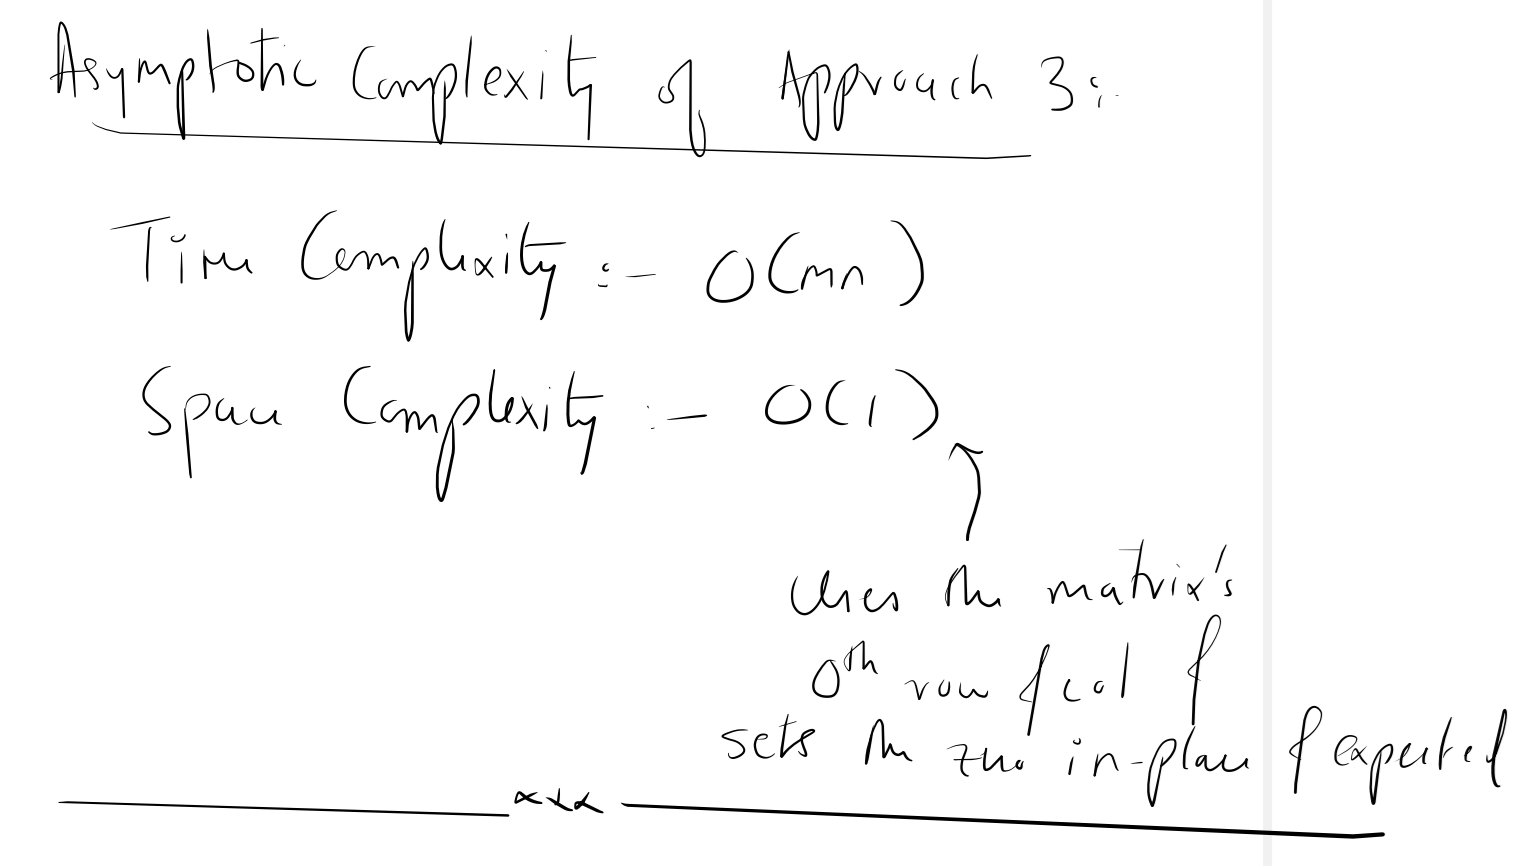 Asymptotic Complexity of Approach 3:
Time Complexity :- O(mn)
Space Complexity :- O(1)
Uses the matrix's
0th row & col &
sets the zero in-place & expected